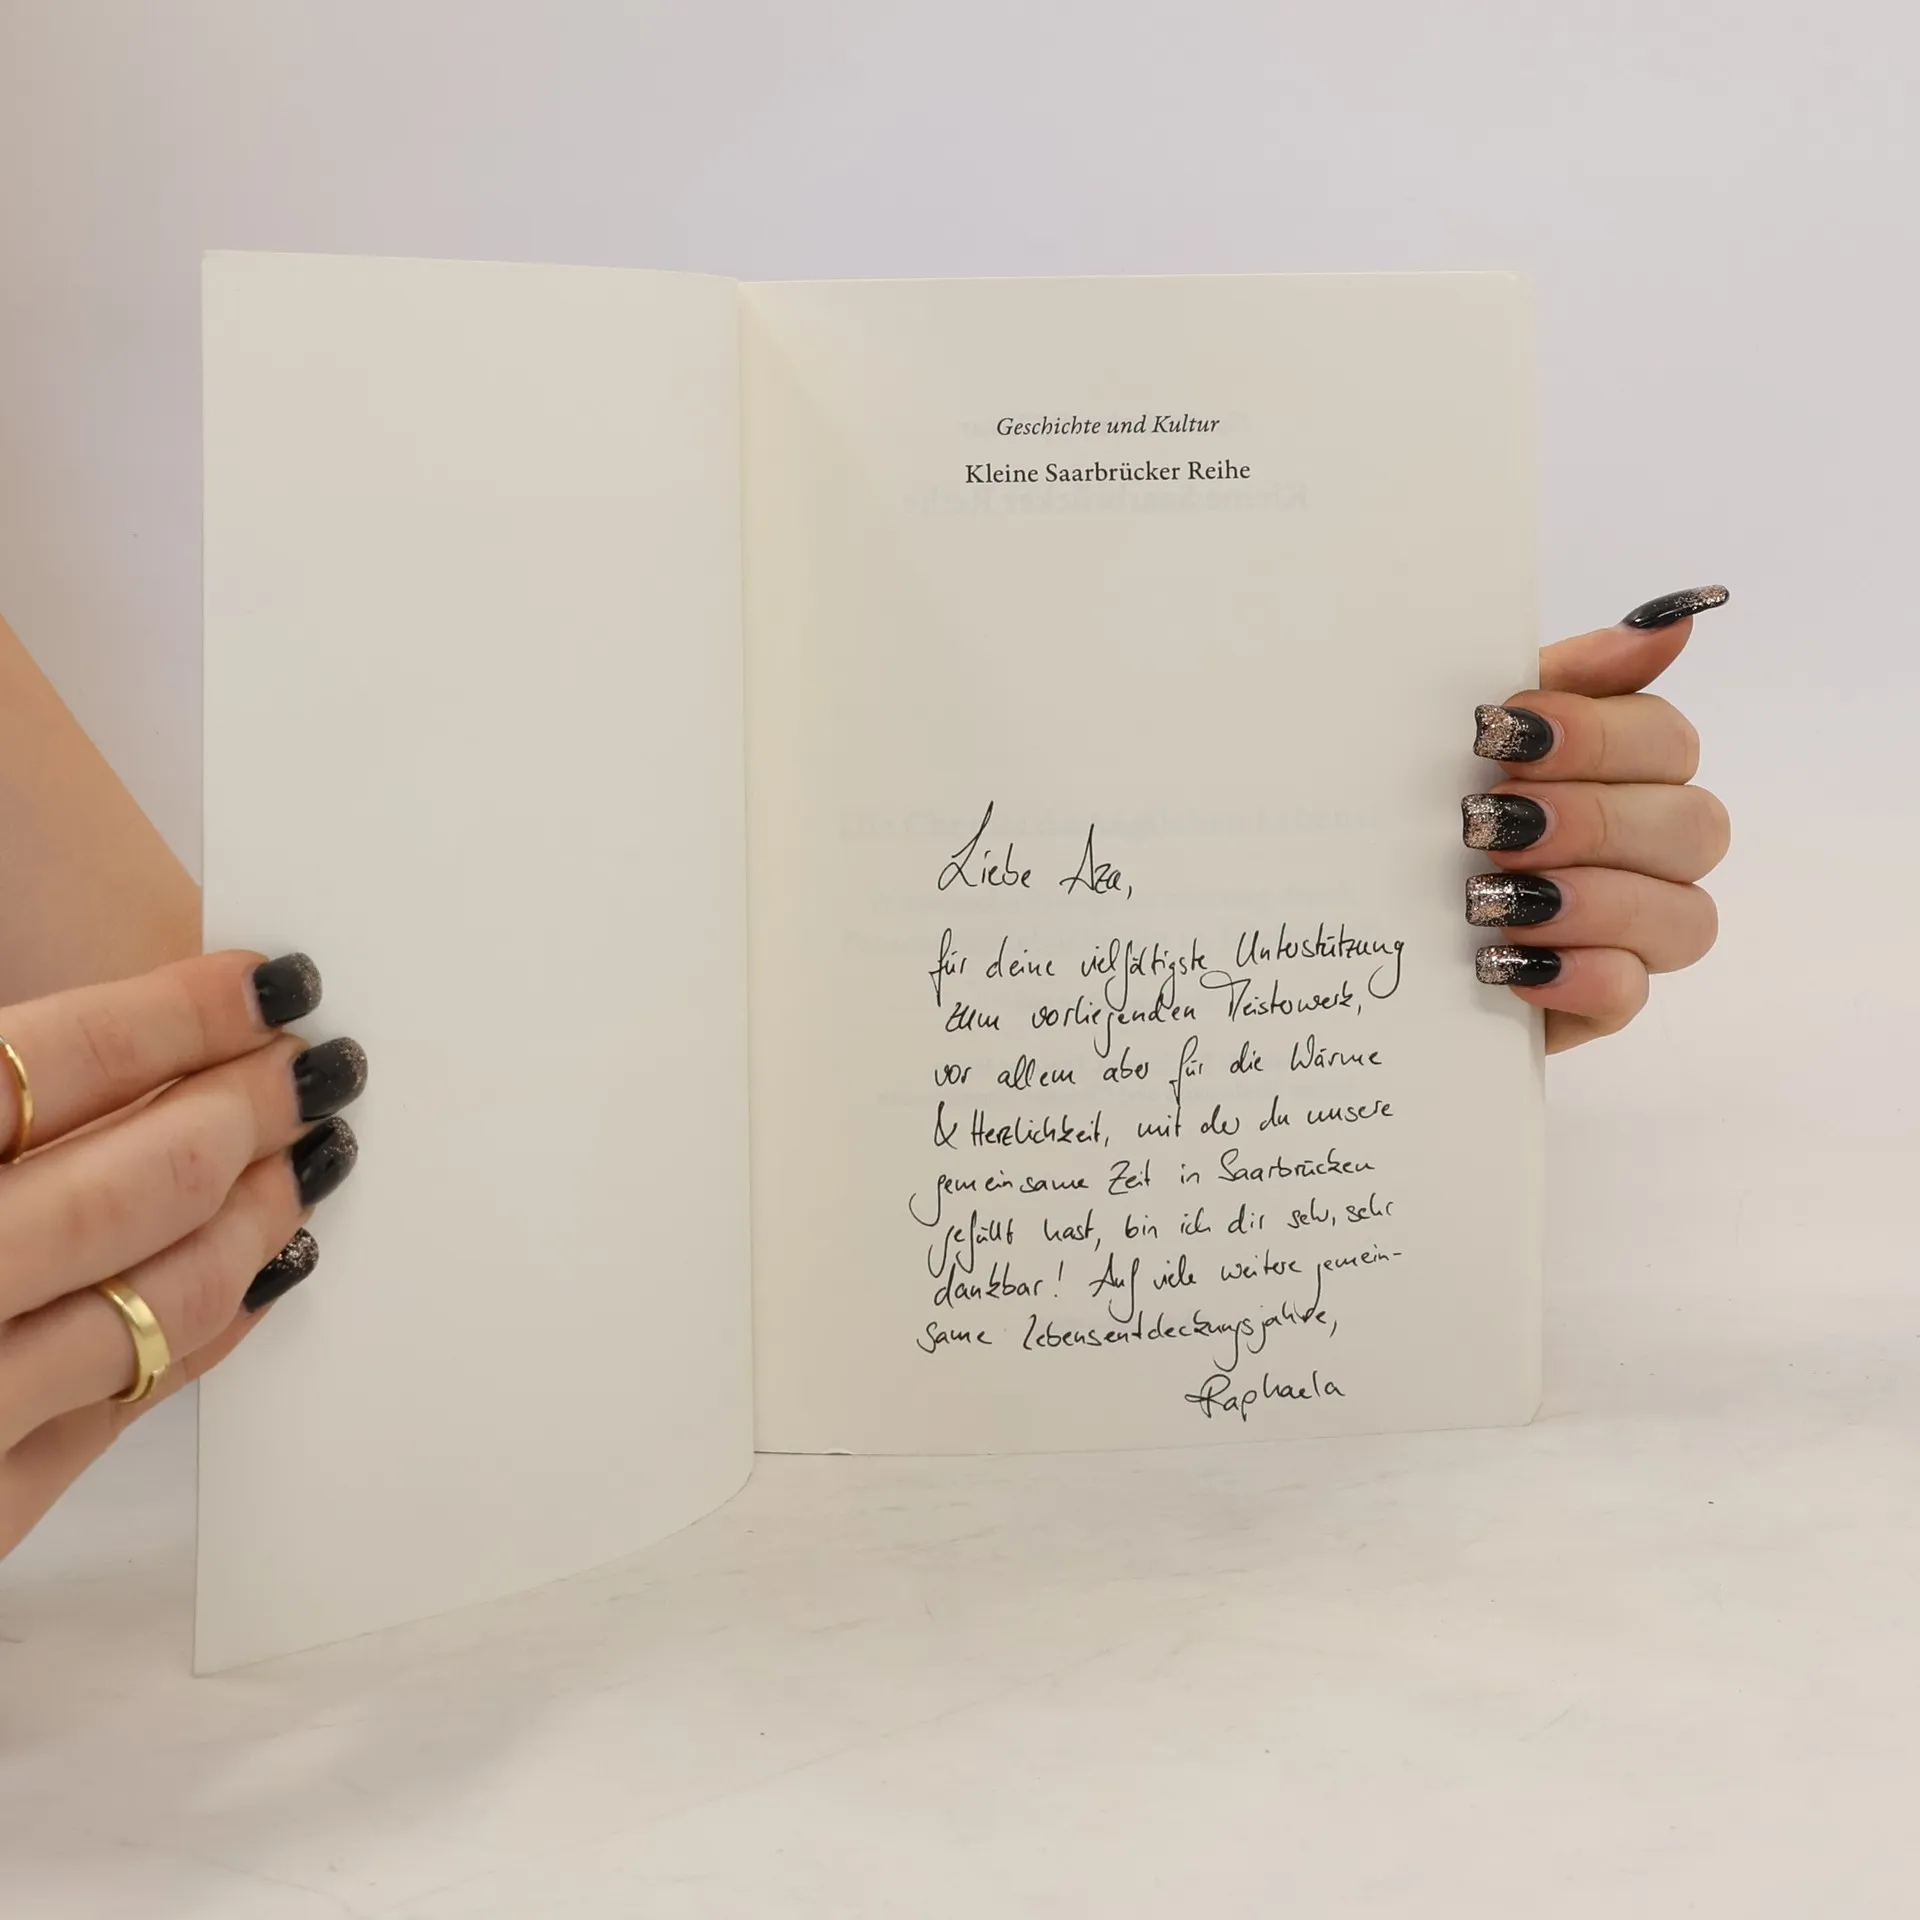 Geschichte und Kultur
Kleine Saarbrücker Reihe
Liebe Aza,
für deine vielfältigste Unterstützung
zum vorliegenden Meisterwerk,
vor allem aber für die Wärme
& Herzlichkeit, mit der du unsere
gemeinsame Zeit in Saarbrücken
gefüllt hast, bin ich dir sehr, sehr
dankbar! Auf viele weitere gemein-
same Lebensentdeckungsjahre,
Raphaela